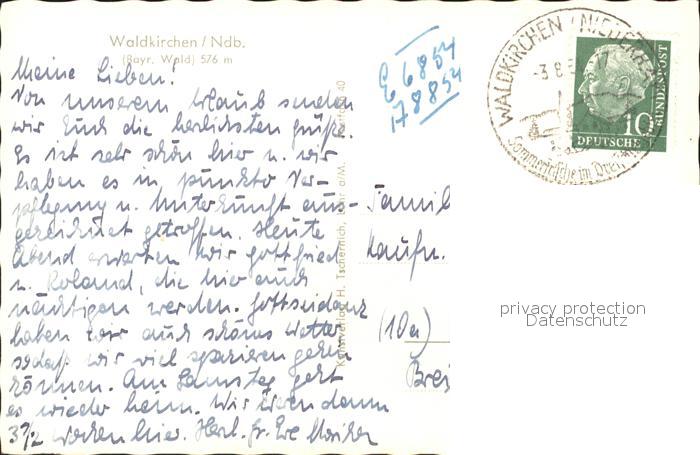 Waldkirchen / Ndb.
(Bayr. Wald) 576 m
Meine Lieben!
Von unserem Urlaub senden
wir Euch die herzlichsten Grüße.
Es ist sehr schön hier u. wir
haben es in punkto Ver-
pflegung u. Unterkunft aus-
gezeichnet getroffen. Heute
Abend erwarten wir Gottfried
u. Roland, die hier auch
nächtigen werden. Gottseidank
haben wir auch schönes Wetter
sodaß wir viel spazieren gehen
können. Am Samstag geht
es wieder heim. Wir waren dann
3 1/2 Wochen hier. Herzl. Gr. Eve
Kunstverlag H. Tschernich, a/M.
E 6854
178854
WALDKIRCHEN / NIEDERB
-3.8.5
Sommerfrische im Drei
10
DEUTSCHE
BUNDESPOST
Famil
Kaufm.
(10a)
privacy protection
Datenschutz